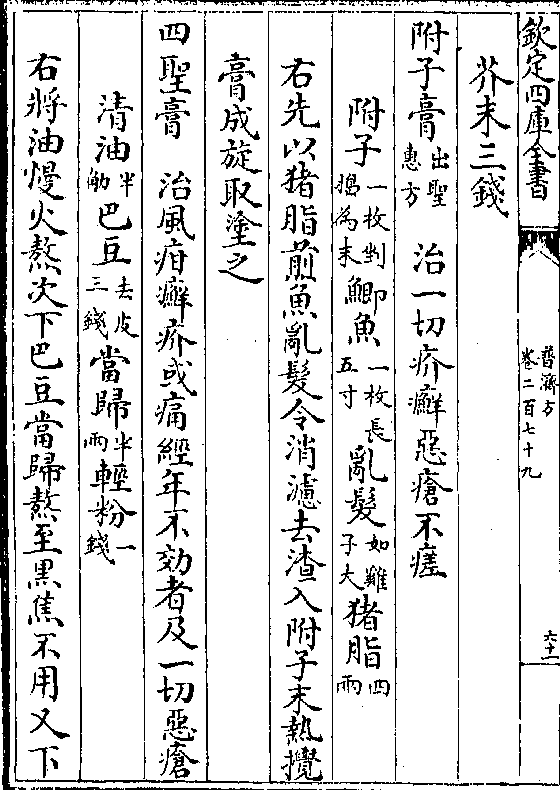 欽定四庫全書
普濟方
卷二百七十九
六十一
芥末三錢
附子膏出聖惠方 治一切疥癬惡瘡不瘥
附子一枚剉搗為末鯽魚一枚長五寸亂髮如雞子大猪脂四兩
右先以猪脂煎魚亂髮令消濾去渣入附子末熱攪
膏成旋取塗之
四聖膏 治風疳癬疥或痛經年不効者及一切惡瘡
清油半觔巴豆去皮三錢當歸半兩輕粉一錢
右將油慢火熬次下巴豆當歸熬至黒焦不用又下